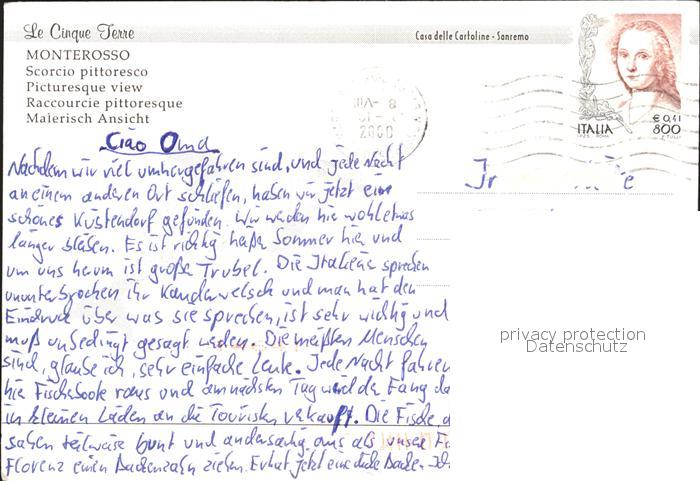 Le Cinque Terre
MONTEROSSO
Scorcio pittoresco
Picturesque view
Raccourcie pittoresque
Malerisch Ansicht
Casa delle Cartoline - Sanremo
2000
ITALIA
€ 0,41
800
Ciao Oma
Nachdem wir viel umhergefahren sind, und jede Nacht
an einem anderen Ort schliefen, haben wir jetzt ein
schönes Küstendorf gefunden. Wir werden hier wohl etwas
länger bleiben. Es ist richtig heißer Sommer hier und
um uns herum ist großer Trubel. Die Italiener sprechen
ununterbrochen ihr Kauderwelsch und man hat den
Eindruck über was sie sprechen, ist sehr wichtig und
muß unbedingt gesagt werden. Die meisten Menschen
sind, glaube ich, sehr einfache Leute. Jede Nacht fahren
hier Fischerboote raus und am nächsten Tag wird der Fang da
in kleinen Läden an die Touristen verkauft. Die Fische
sahen teilweise bunt und andersartig aus als unsere
Florenz einen Backenzahn ziehen. Er hat jetzt eine dicke Backen
privacy protection
Datenschutz